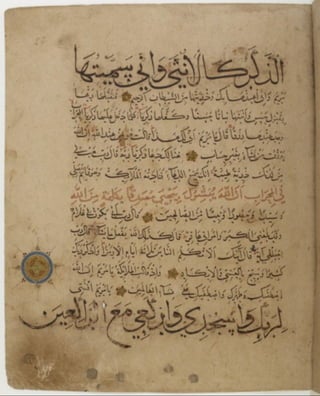 الذكر كالانثى واني سميتها
مريم واني اعيذها بك وذريتها من الشيطان الرجيم فتقبلها ربها
بقبول حسن وانبتها نباتا حسنا وكفلها زكريا كلما دخل عليها زكريا المحراب
وجد عندها رزقا قال يا مريم انى لك هذا قالت هو من عند الله ان الله
يرزق من يشاء بغير حساب هنالك دعا زكريا ربه قال رب هب لي
من لدنك ذرية طيبة انك سميع الدعاء فنادته الملائكة وهو قائم يصلي
في المحراب ان الله يبشرك بيحيى مصدقا بكلمة من الله
وسيدا وحصورا ونبيا من الصالحين قال رب انى يكون لي غلام
وقد بلغني الكبر وامراتي عاقر قال كذلك الله يفعل ما يشاء قال رب
اجعل لي اية قال ايتك الا تكلم الناس ثلثة ايام الا رمزا واذكر ربك
كثيرا وسبح بالعشي والابكار واذ قالت الملائكة يا مريم ان الله
اصطفيك وطهرك واصطفيك على نساء العالمين يا مريم اقنتي
لربك واسجدي واركعي مع الراكعين